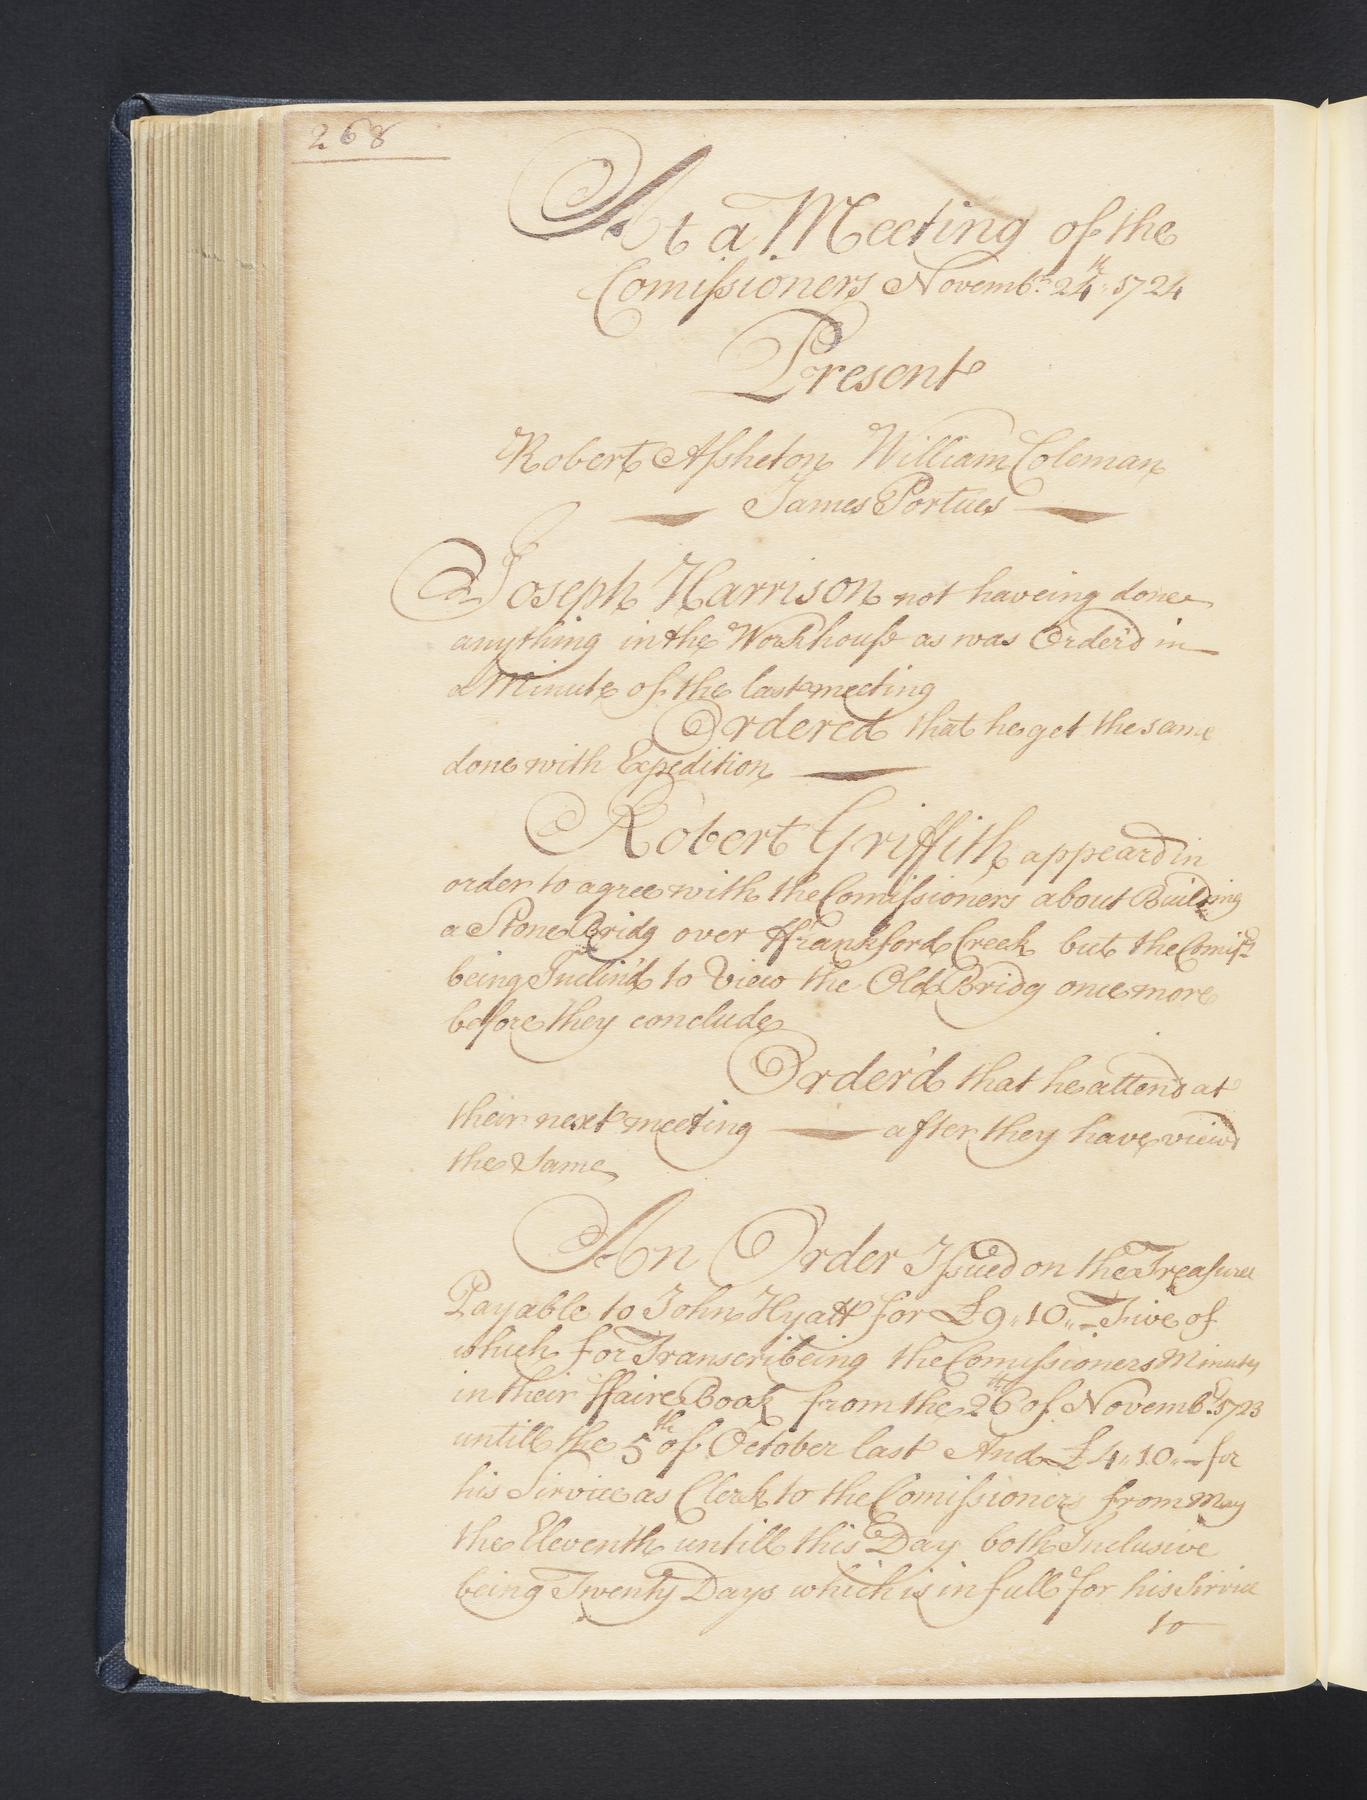 268
At a Meeting of the
Comissioners Novemb.r 24th 1724
Present
Robert Assheton William Coleman
James Portues
Joseph Harrison not haveing done
anything in the Workhouse as was Order'd in
a Minute of the last meeting
Ordered that he get the same
done with Expedition
Robert Griffith appeard in
order to agree with the Comissioners about Building
a Stone Bridg over ffrankford Creek but the Comiss.rs
being Inclin'd to View the Old Bridg once more
before they conclude
Order'd that he attend at
their next meeting after they have viewd
the Same
An Order Issued on the Treasurer
Payable to John Hyatt for £9,,10,,- Five of
which for Transcribeing the Comissioners Minutes
in their ffaire Book from the 26th of Novemb.r 1723
untill the 5th of October last And £4,,10,,- for
his Service as Clerk to the Comissioners from May
the Eleventh untill this Day both Inclusive
being Twenty Days which is in full for his Service
to